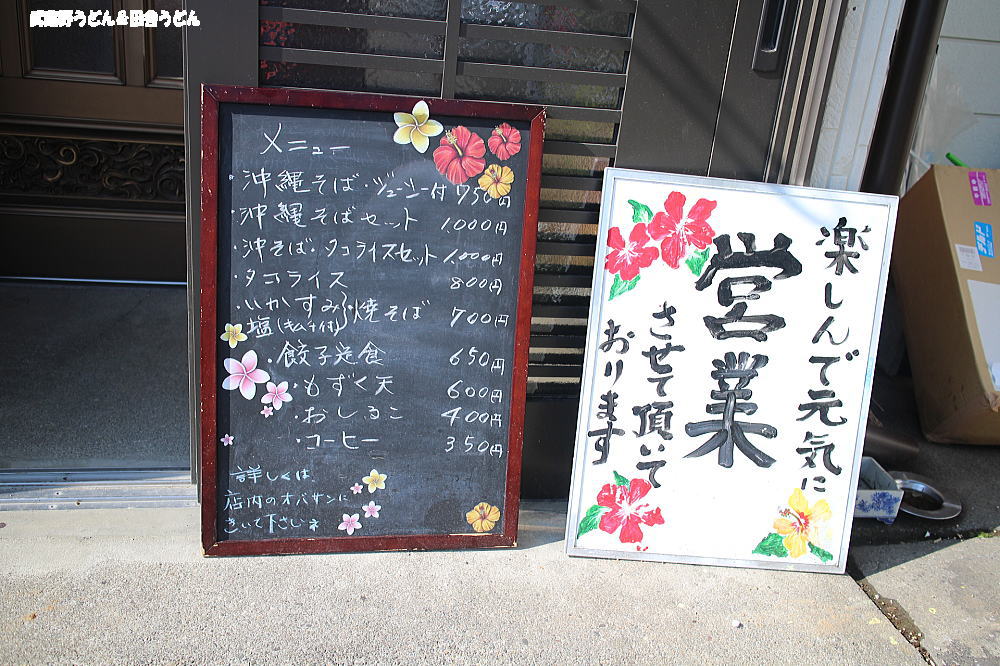 武蔵野うどん&田舎うどん
メニュー
・沖縄そば・ジューシー付 750円
・沖縄そばセット 1.000円
・沖そば・タコライスセット 1.000円
・タコライス 800円
・いかすみ
塩(キムチ付)}焼そば 700円
・餃子定食 650円
・もずく天 600円
・おしるこ 400円
・コーヒー 350円
詳しくは、
店内のオバサンに
きいて下さいネ
楽しんで元気に
営業
させて頂いて
おります